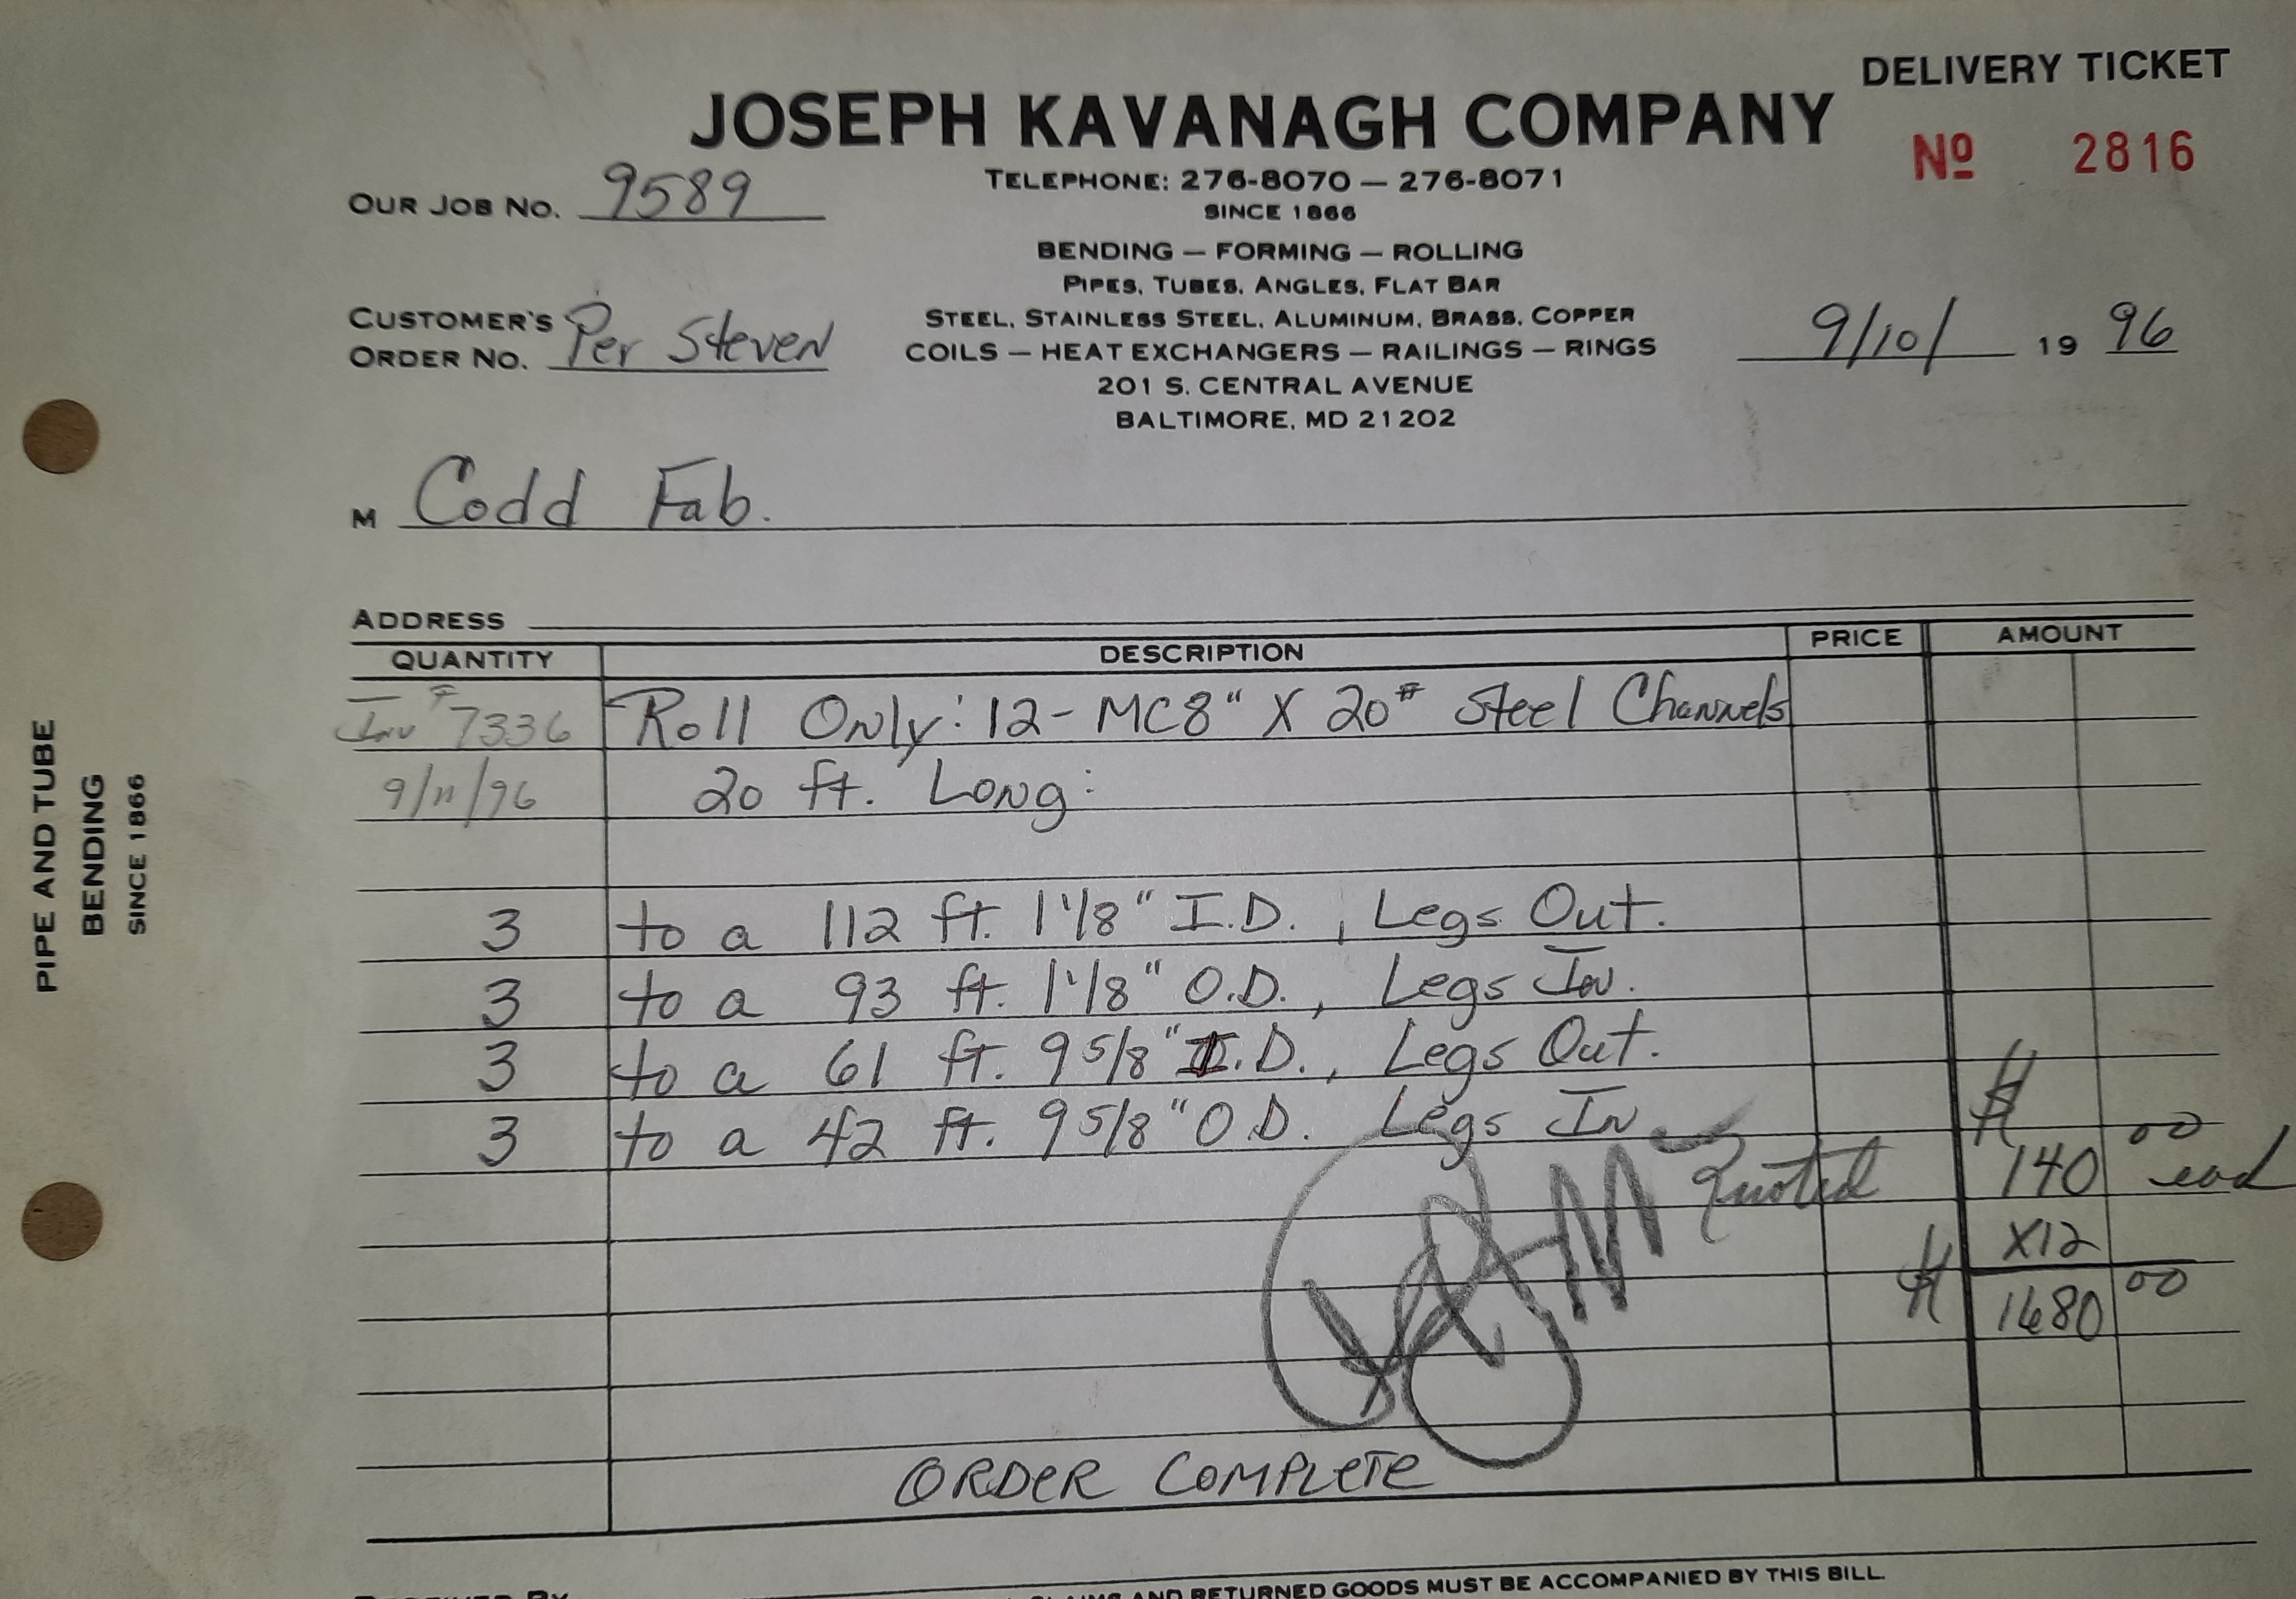 DELIVERY TICKET
JOSEPH KAVANAGH COMPANY
Nº 2816
TELEPHONE: 276-8070 — 276-8071
SINCE 1866
OUR JOB NO. 9589
BENDING — FORMING — ROLLING
PIPES, TUBES, ANGLES, FLAT BAR
CUSTOMER'S ORDER NO. Per Steven
STEEL, STAINLESS STEEL, ALUMINUM, BRASS, COPPER
COILS — HEAT EXCHANGERS — RAILINGS — RINGS
9/10/ 19 96
201 S. CENTRAL AVENUE
BALTIMORE, MD 21202
M Codd Fab.
ADDRESS
QUANTITY DESCRIPTION PRICE AMOUNT
Inv # 7336 Roll Only: 12- MC8" X 20# Steel Channels
9/11/96 20 ft. Long:
3 to a 112 ft. 1 1/8" I.D., Legs Out.
3 to a 93 ft. 1 1/8" O.D., Legs In.
3 to a 61 ft. 9 5/8" I.D., Legs Out.
3 to a 42 ft. 9 5/8" O.D. Legs In
Quoted $ 140 00 each
X12
$ 1680 00
ORDER COMPLETE
PIPE AND TUBE
BENDING
SINCE 1866
RECEIVED BY
CLAIMS AND RETURNED GOODS MUST BE ACCOMPANIED BY THIS BILL.